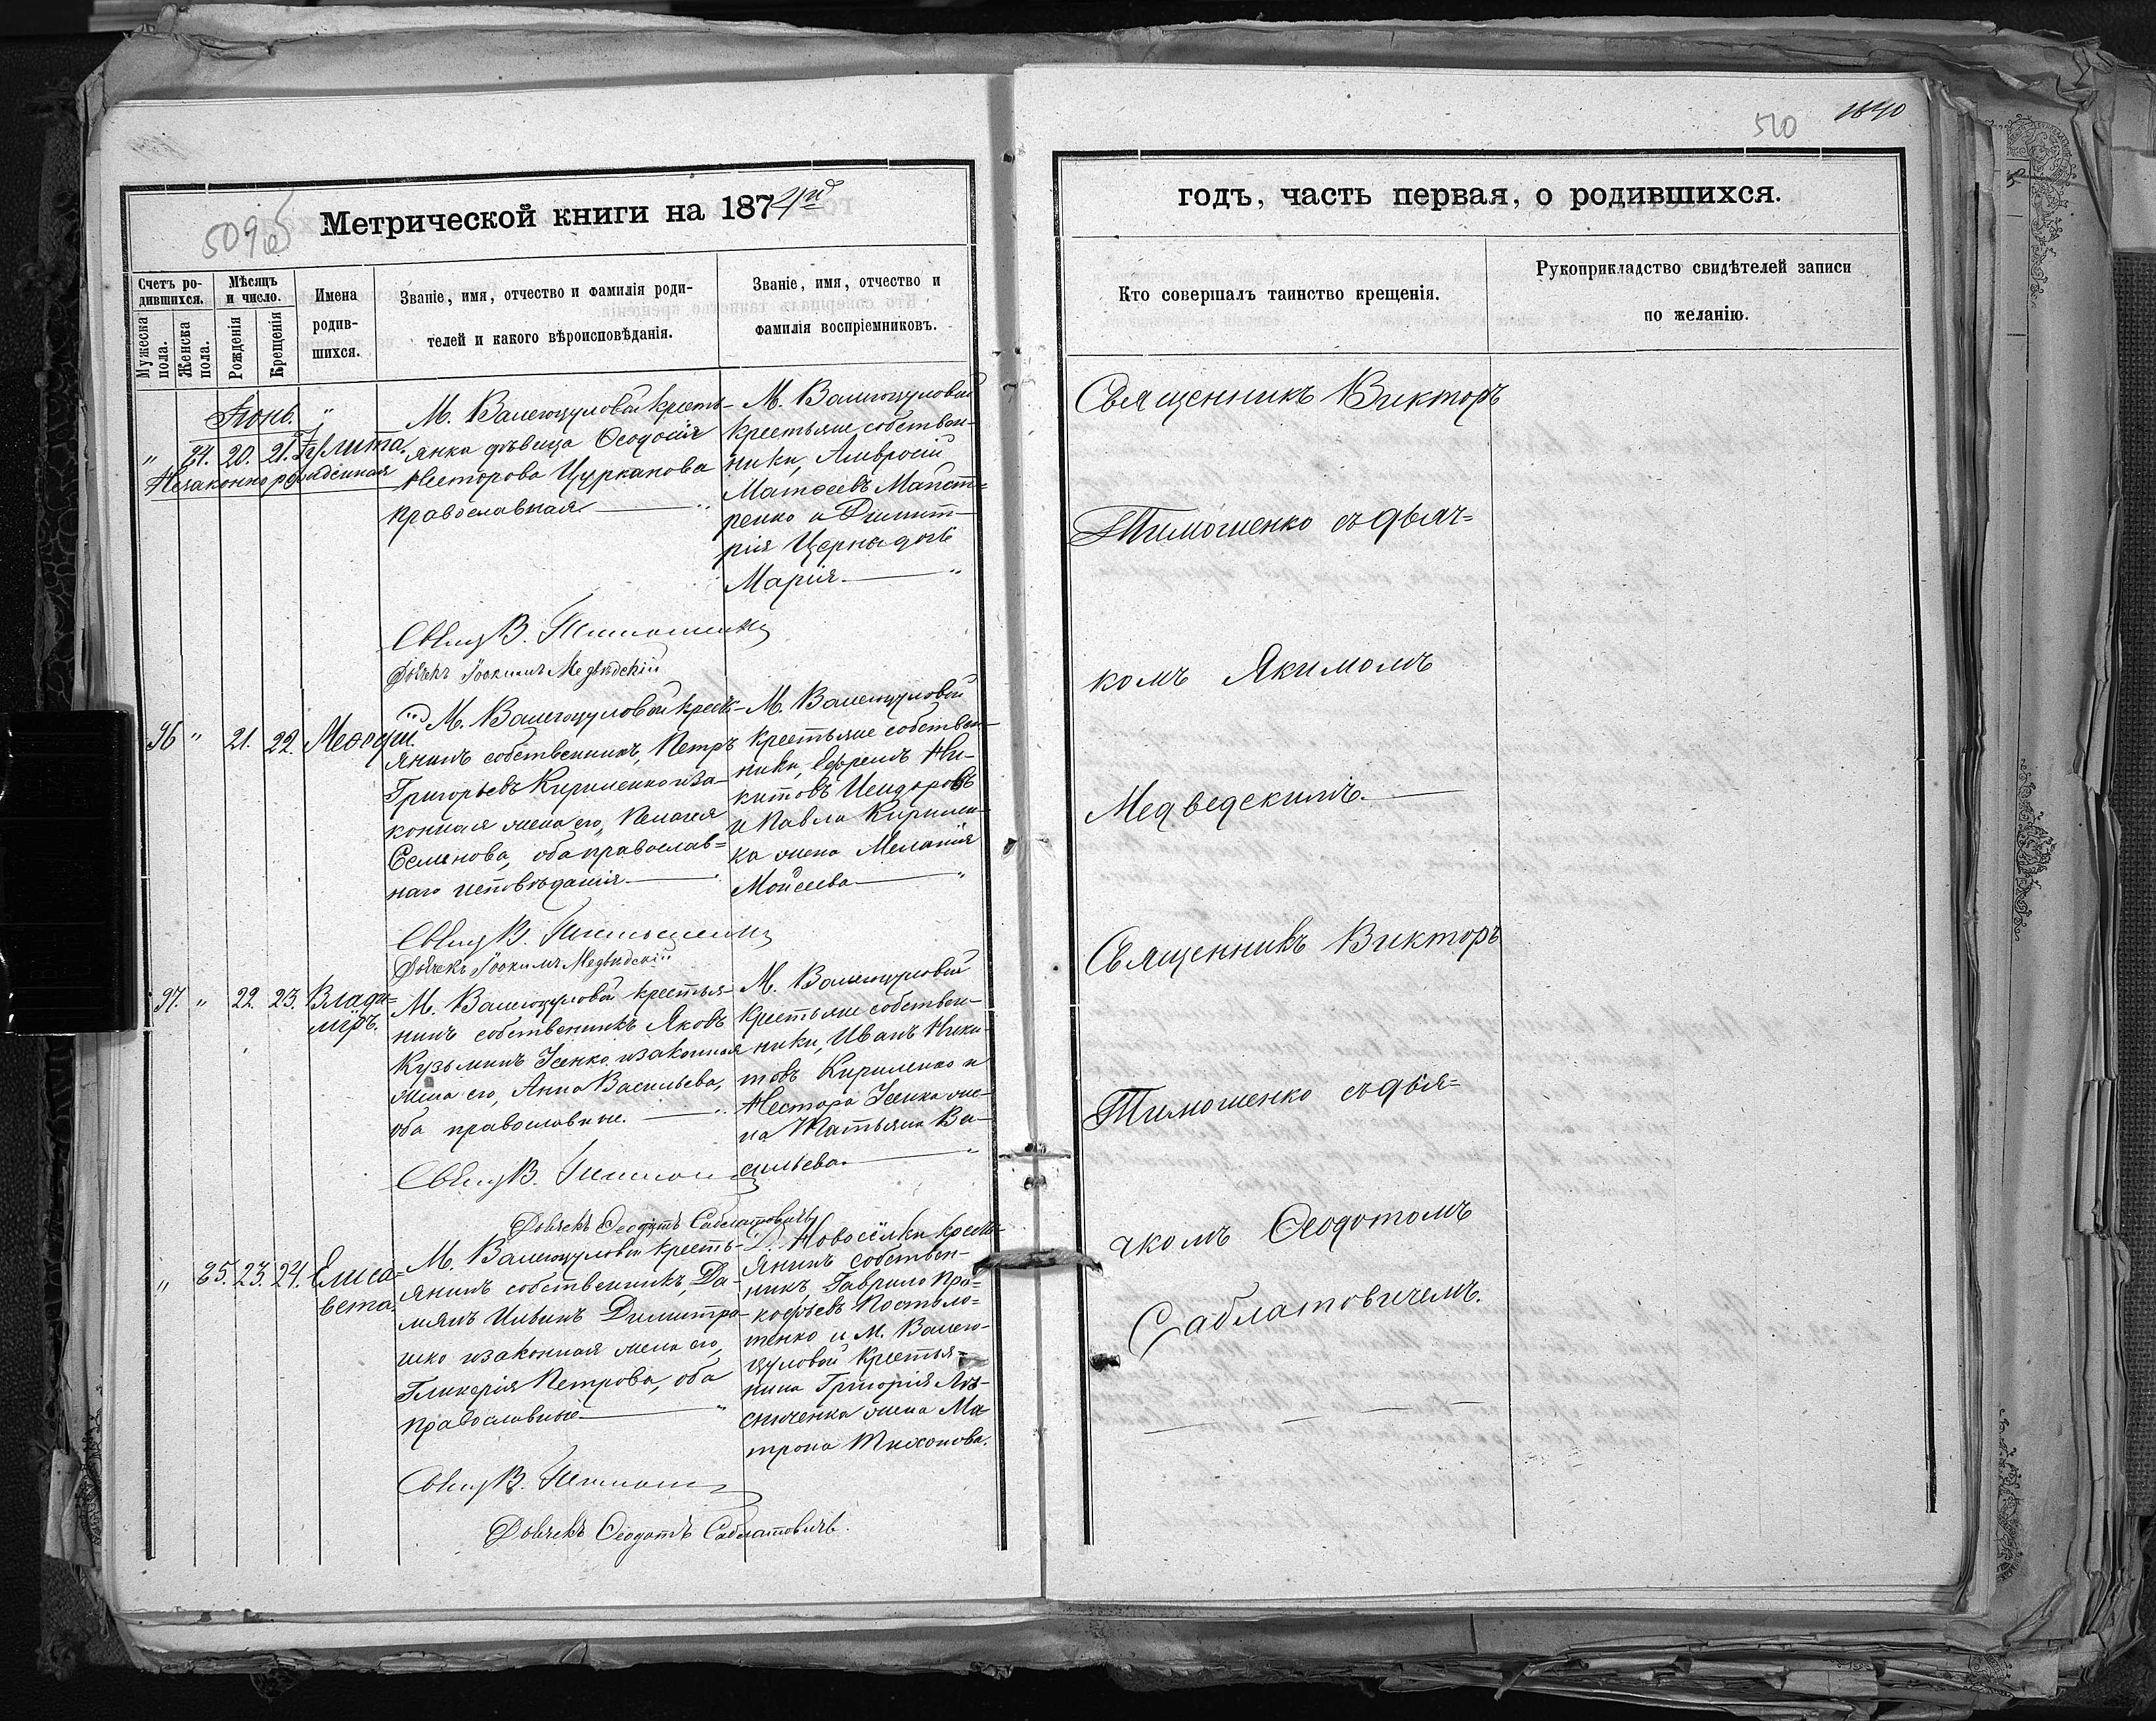 Метрической книги на 1874й
Счетъ родившихся.
Мужеска пола.
Женска пола.
Мѣсяцъ и число.
Рожденія
Крещенія
Имена родив-
шихся.
Званіе, имя, отчество и фамилія роди-
телей и какого вѣроисповѣданія.
Званіе, имя, отчество и
фамилія воспріемниковъ.
Іюнь.
" 24. 20. 21. Іулита.
Незаконнорожденная
М. Валегоцуловой кресть-
янка дѣвица Ѳеодосія
Несторова Цурканова
православная.
М. Валегоцуловой
крестьяне собствен-
ники, Амвросій
Матѳеевъ
и Димит-
рія дочь
Марія.
Свящ В. Тимошенко
Дьячекъ Іоакимъ Медвѣдскій
96 " 21. 22. Меѳодій.
М. Валегоцуловой кресть-
янинъ собственникъ, Петръ
Григорьевъ Кириленко и за-
конная жена его, Пелагея
Семенова, оба православ=
наго исповѣданія.
М. Валегоцуловой
крестьяне собствен-
ники, Ефремъ Ни-
китовъ
и Павла Кирилен-
ка жена Меланія
Моисеева
Свящ В. Тимошенко
Дьячекъ Іоакимъ Медвѣдскій
97. " 22. 23. Влади=
міръ.
М. Валегоцуловой крестья-
нинъ собственникъ Яковъ
Кузьминъ Усенко и законная
жена его, Анна Васильева,
оба православные.
М. Валегоцуловой
крестьяне собствен-
ники, Иванъ Ники-
товъ Кириленко и
Нестора Усенка же-
на Татьяна Ва-
сильева.
Свящ В. Тимошенко
Дьячекъ Ѳеодотъ Саблатовичъ
" 25. 23. 24. Елиса=
вета.
М. Валегоцуловой кресть-
янинъ собственникъ, Да-
міанъ Ильинъ Димитра-
шко и законная жена его,
Гликерія Петрова, оба
православные
Д. Новосёлки кресть-
янинъ собствен-
никъ, Гаврило Про=
кофьевъ
и М. Валего-
цуловой крестья-
нина Григорія
жена Ма-
трона Тихонова.
Свящ В. Тимошенко
Дьячекъ Ѳеодотъ Саблатовичъ.
510
годъ, часть первая, о родившихся.
Кто совершалъ таинство крещенія.
Рукоприкладство свидѣтелей записи
по желанію.
Священникъ Викторъ
Тимошенко съ дьяч=
комъ Якимомъ
Медведскимъ.
Священникъ Викторъ
Тимошенко съ дья=
чкомъ Ѳеодотомъ
Саблатовичемъ.